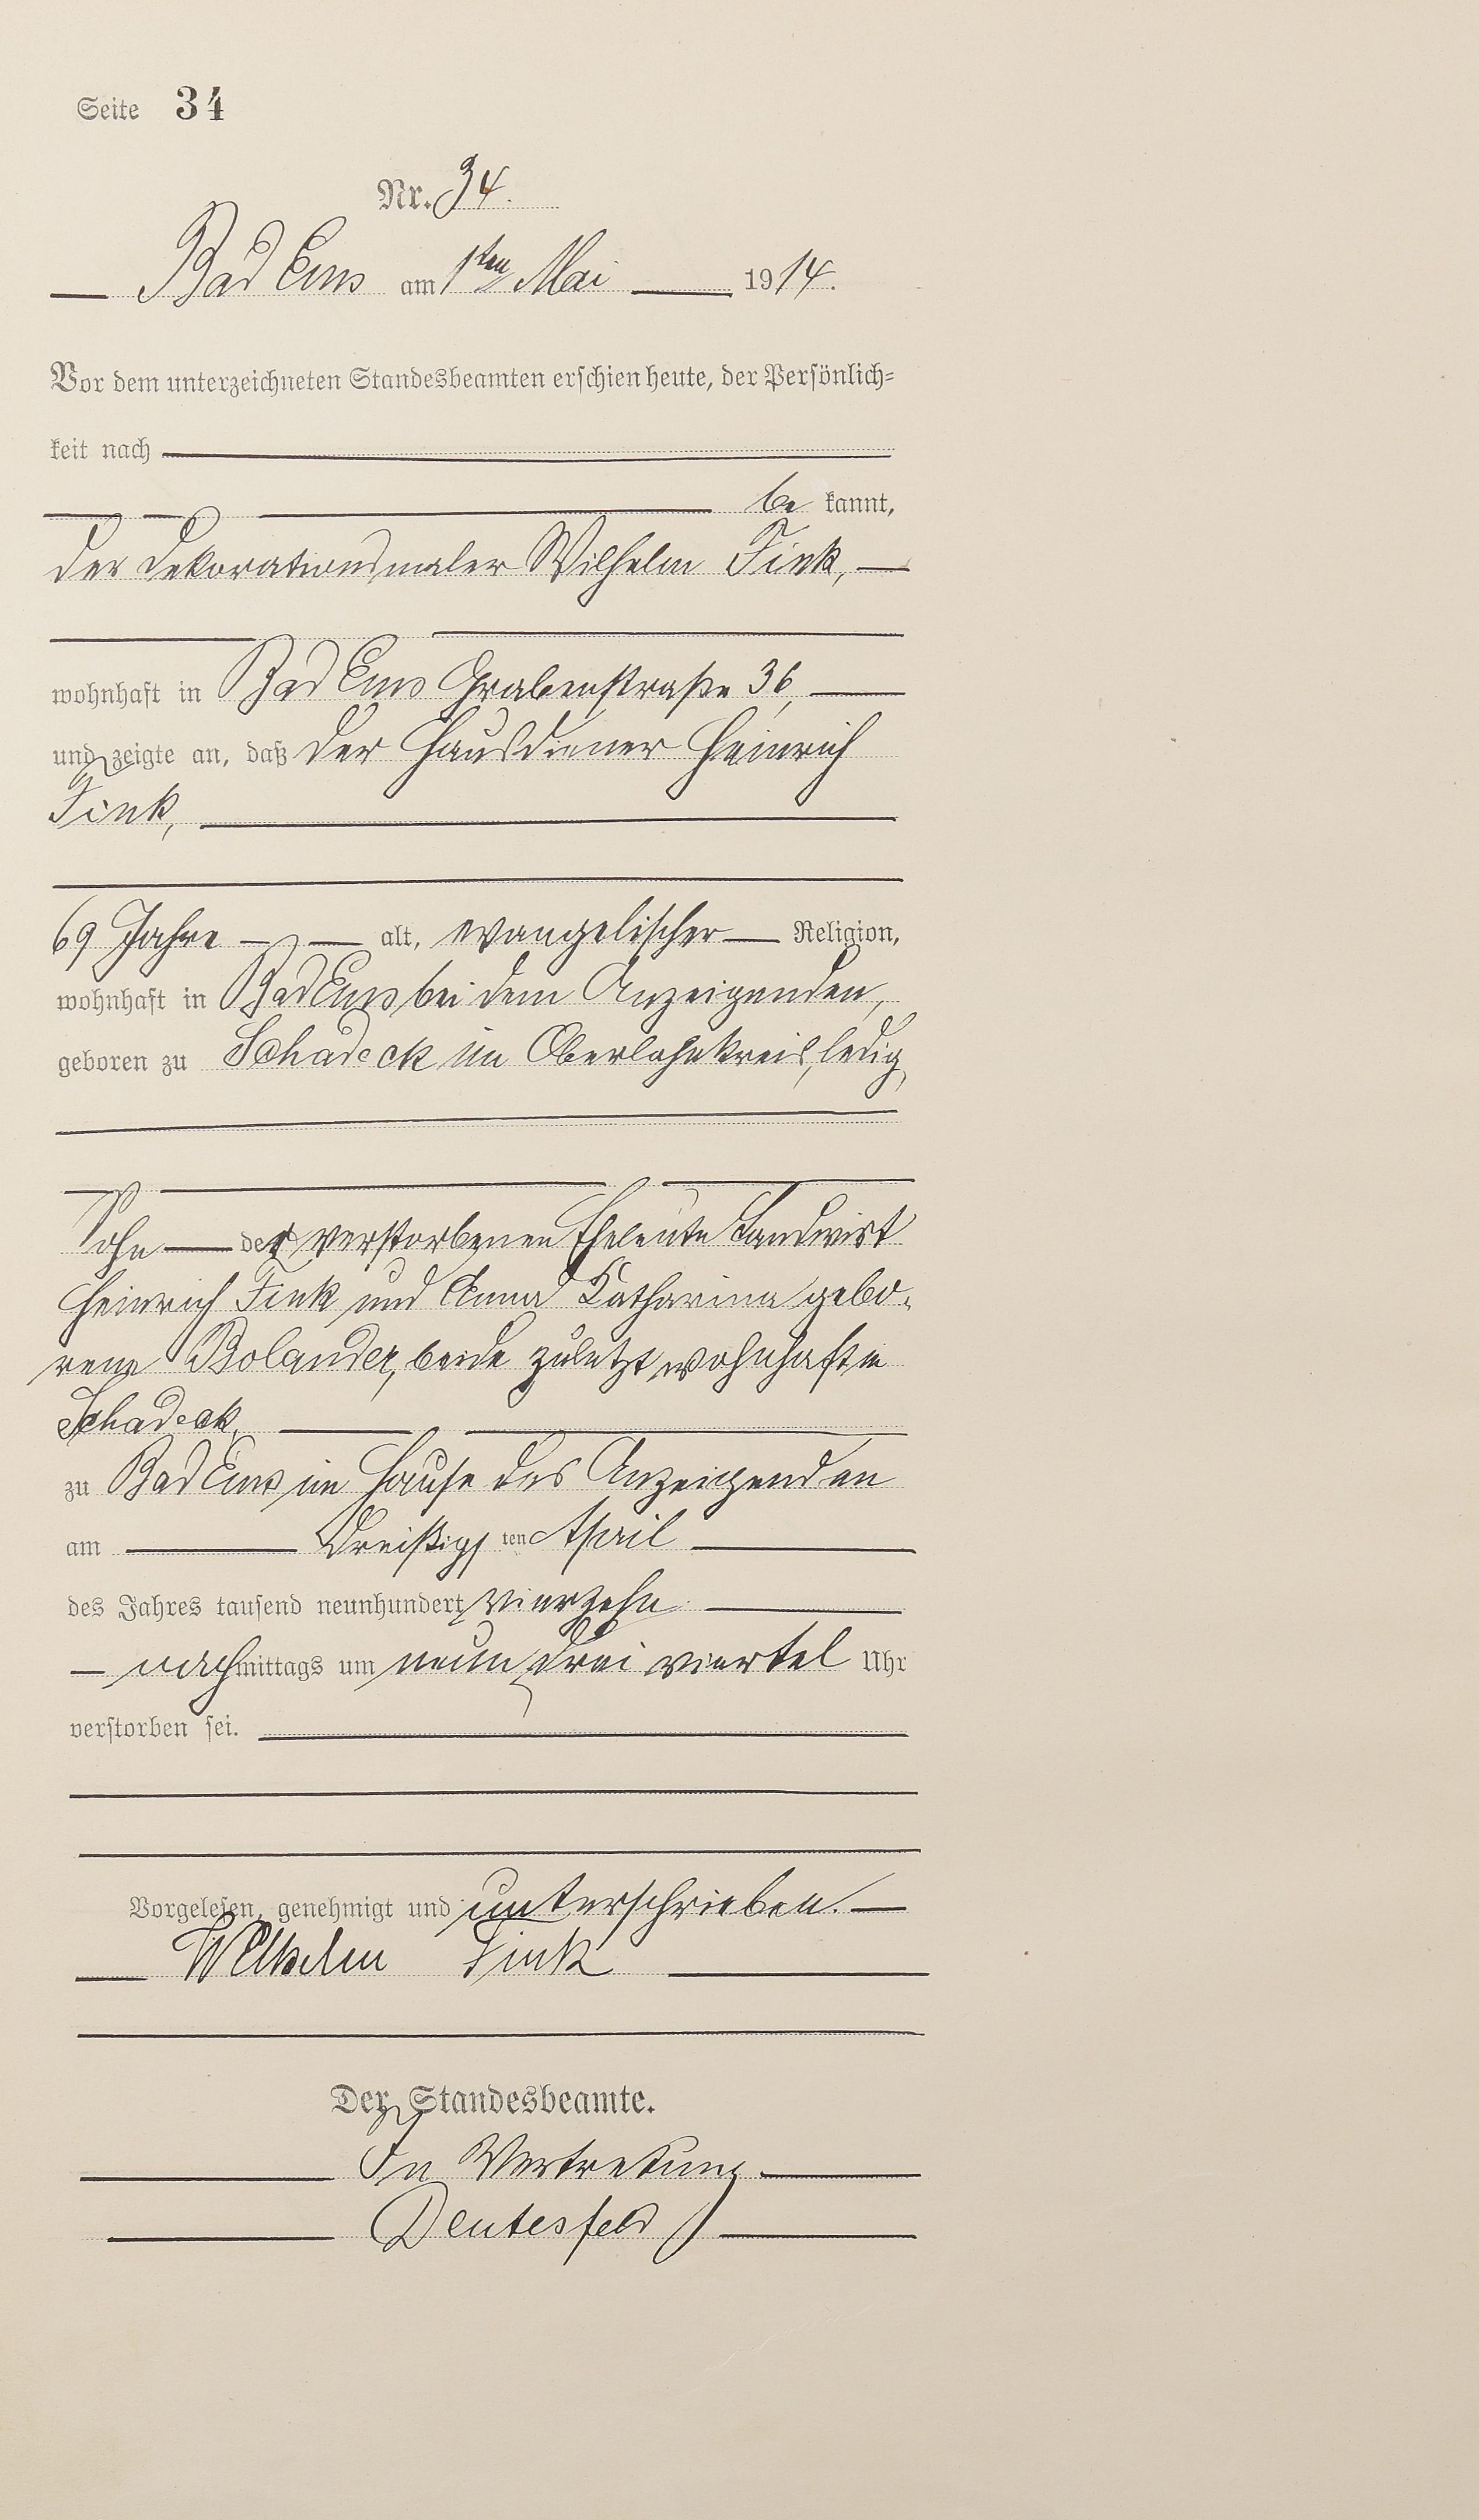 Seite 34
Nr. 34.
Bad Ems am 1ten Mai 1914.
Vor dem unterzeichneten Standesbeamten erschien heute, der Persönlich=
keit nach
be kannt,
der Dekorationsmaler Wilhelm Fink,
wohnhaft in Bad Ems Grabenstraße 36,
und zeigte an, daß der Hausdiener Heinrich
Fink,
69 Jahre alt, evangelischer Religion,
wohnhaft in Bad Ems bei dem Anzeigenden,
geboren zu Schadeck im Oberlahnkreis, ledig,
Sohn der verstorbenen Eheleute Landwirt
Heinrich Fink und Anna Katharina gebo-
rene Bolander, beide zuletzt wohnhaft in
Schadeck,
zu Bad Ems im Hause des Anzeigenden
am Dreißigs ten April
des Jahres tausend neunhundert vierzehn
nachmittags um neun drei viertel Uhr
verstorben sei.
Vorgelesen, genehmigt und unterschrieben.
Wilhelm Fink
Der Standesbeamte.
In Vertretung
Deutesfeld